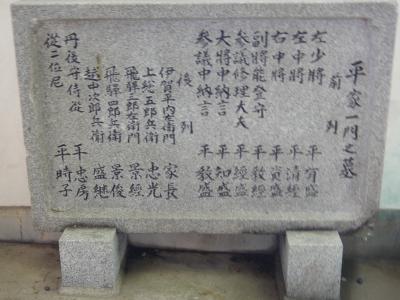 平家一門之墓
前列
左少將 平有盛
左中將 平清經
右中將 平資盛
副將能登守 平教經
參議修理大夫 平經盛
大將中納言 平知盛
參議中納言 平教盛
後列
伊賀平內左衛門 家長
上総五郎兵衛 忠光
飛騨三郎左衛門 景經
飛騨四郎兵衛 景俊
越中次郎兵衛 盛継
丹後守侍従 平忠房
從二位尼 平時子